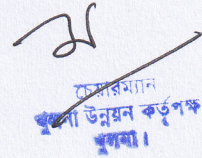 চেয়ারম্যান
খুলনা উন্নয়ন কর্তৃপক্ষ
খুলনা।